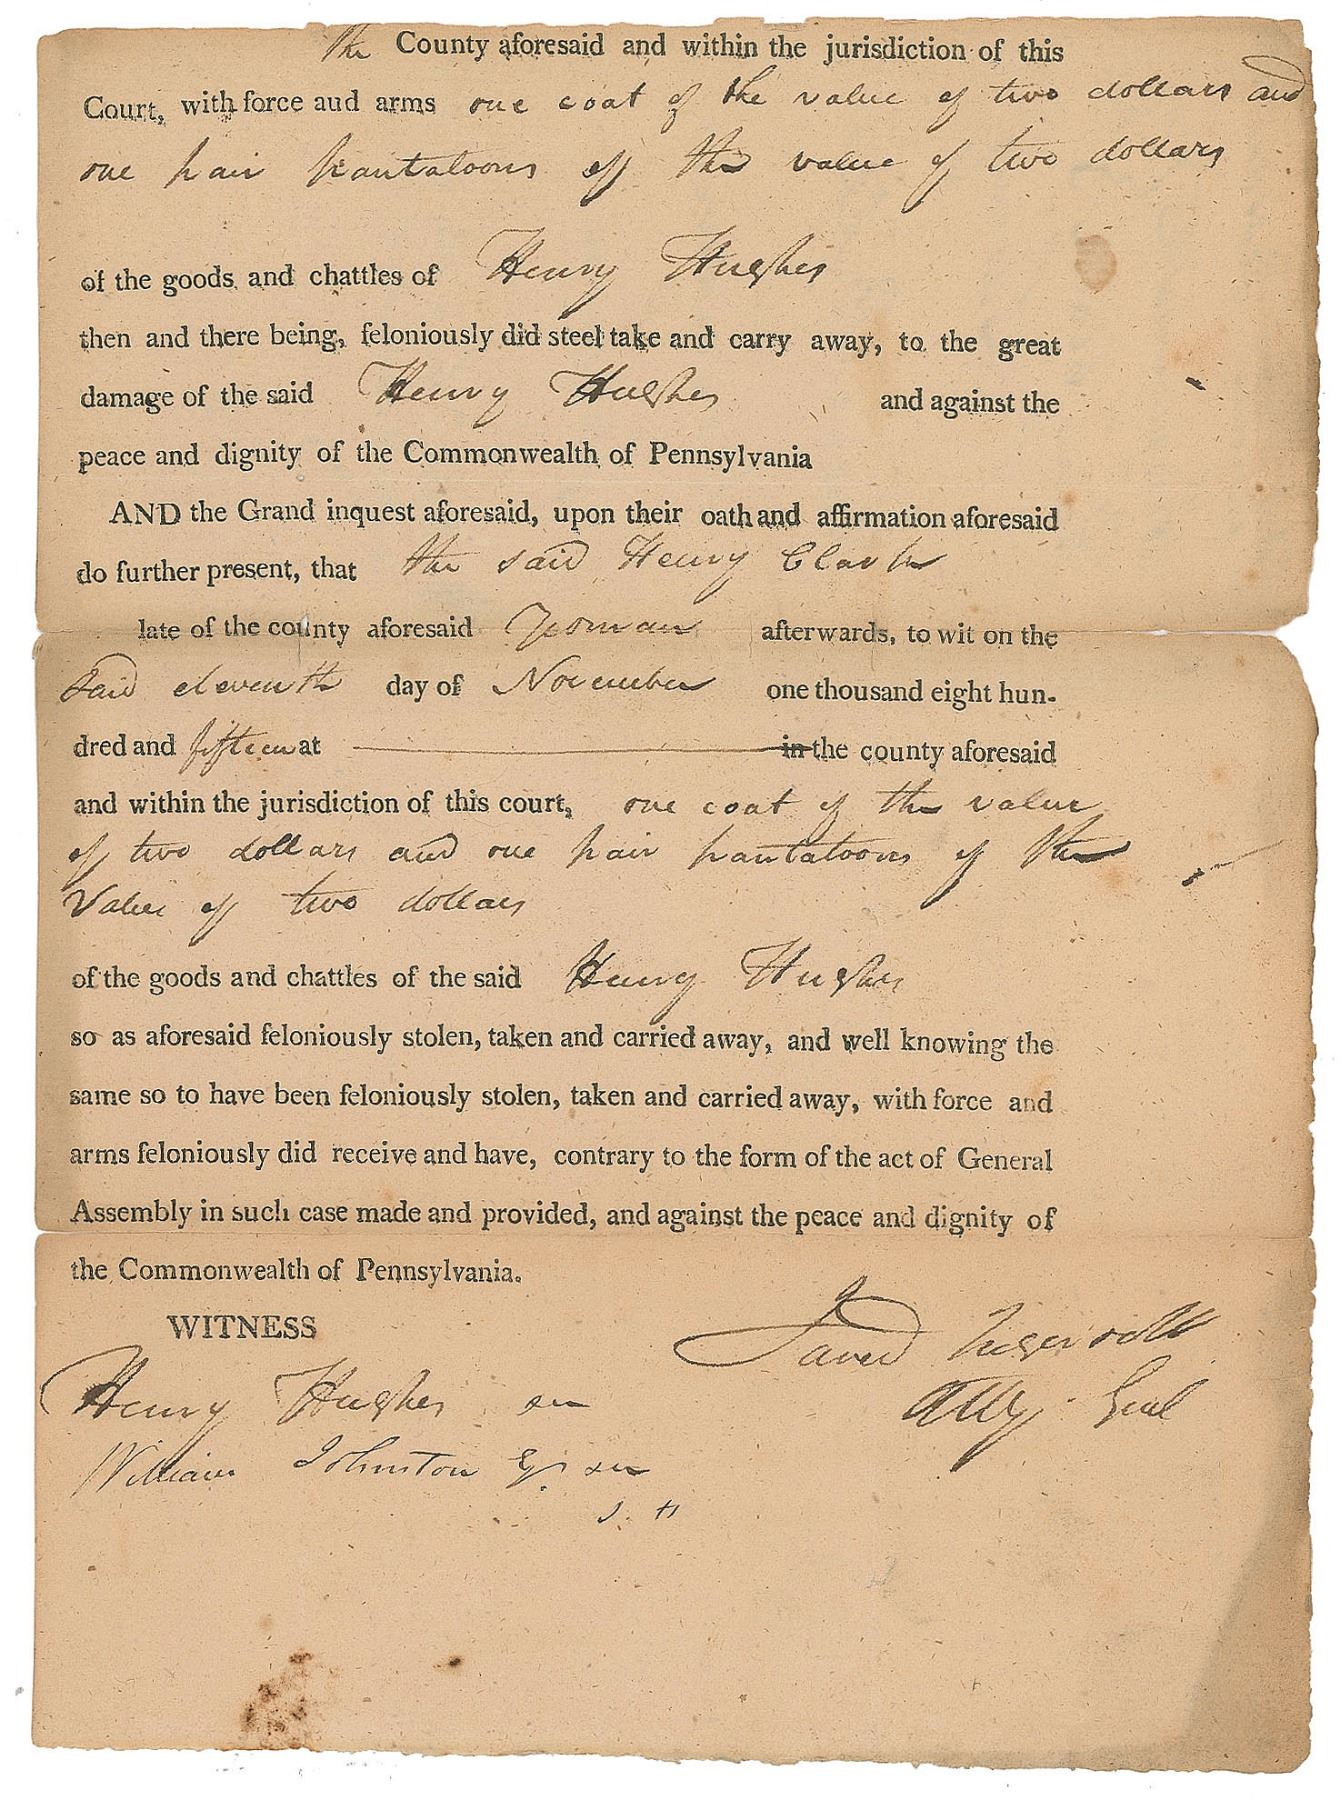 the County aforesaid and within the jurisdiction of this
Court, with force aud arms one coat of the value of two dollars and
one pair pantaloons of the value of two dollars
of the goods and chattles of Henry Hughes
then and there being, feloniously did steel take and carry away, to the great
damage of the said Henry Hughes and against the
peace and dignity of the Commonwealth of Pennsylvania
AND the Grand inquest aforesaid, upon their oath and affirmation aforesaid
do further present, that the said Henry Clark
late of the county aforesaid Yoman afterwards, to wit on the
said eleventh day of November one thousand eight hun-
dred and fifteen at in the county aforesaid
and within the jurisdiction of this court, one coat of the value
of two dollars and one pair pantaloons of the
value of two dollars
of the goods and chattles of the said Henry Hughes
so as aforesaid feloniously stolen, taken and carried away, and well knowing the
same so to have been feloniously stolen, taken and carried away, with force and
arms feloniously did receive and have, contrary to the form of the act of General
Assembly in such case made and provided, and against the peace and dignity of
the Commonwealth of Pennsylvania.
WITNESS
Jared Ingersoll
Henry Hughes sn
Atty Genl
William Johnston Esq. sn
J. H